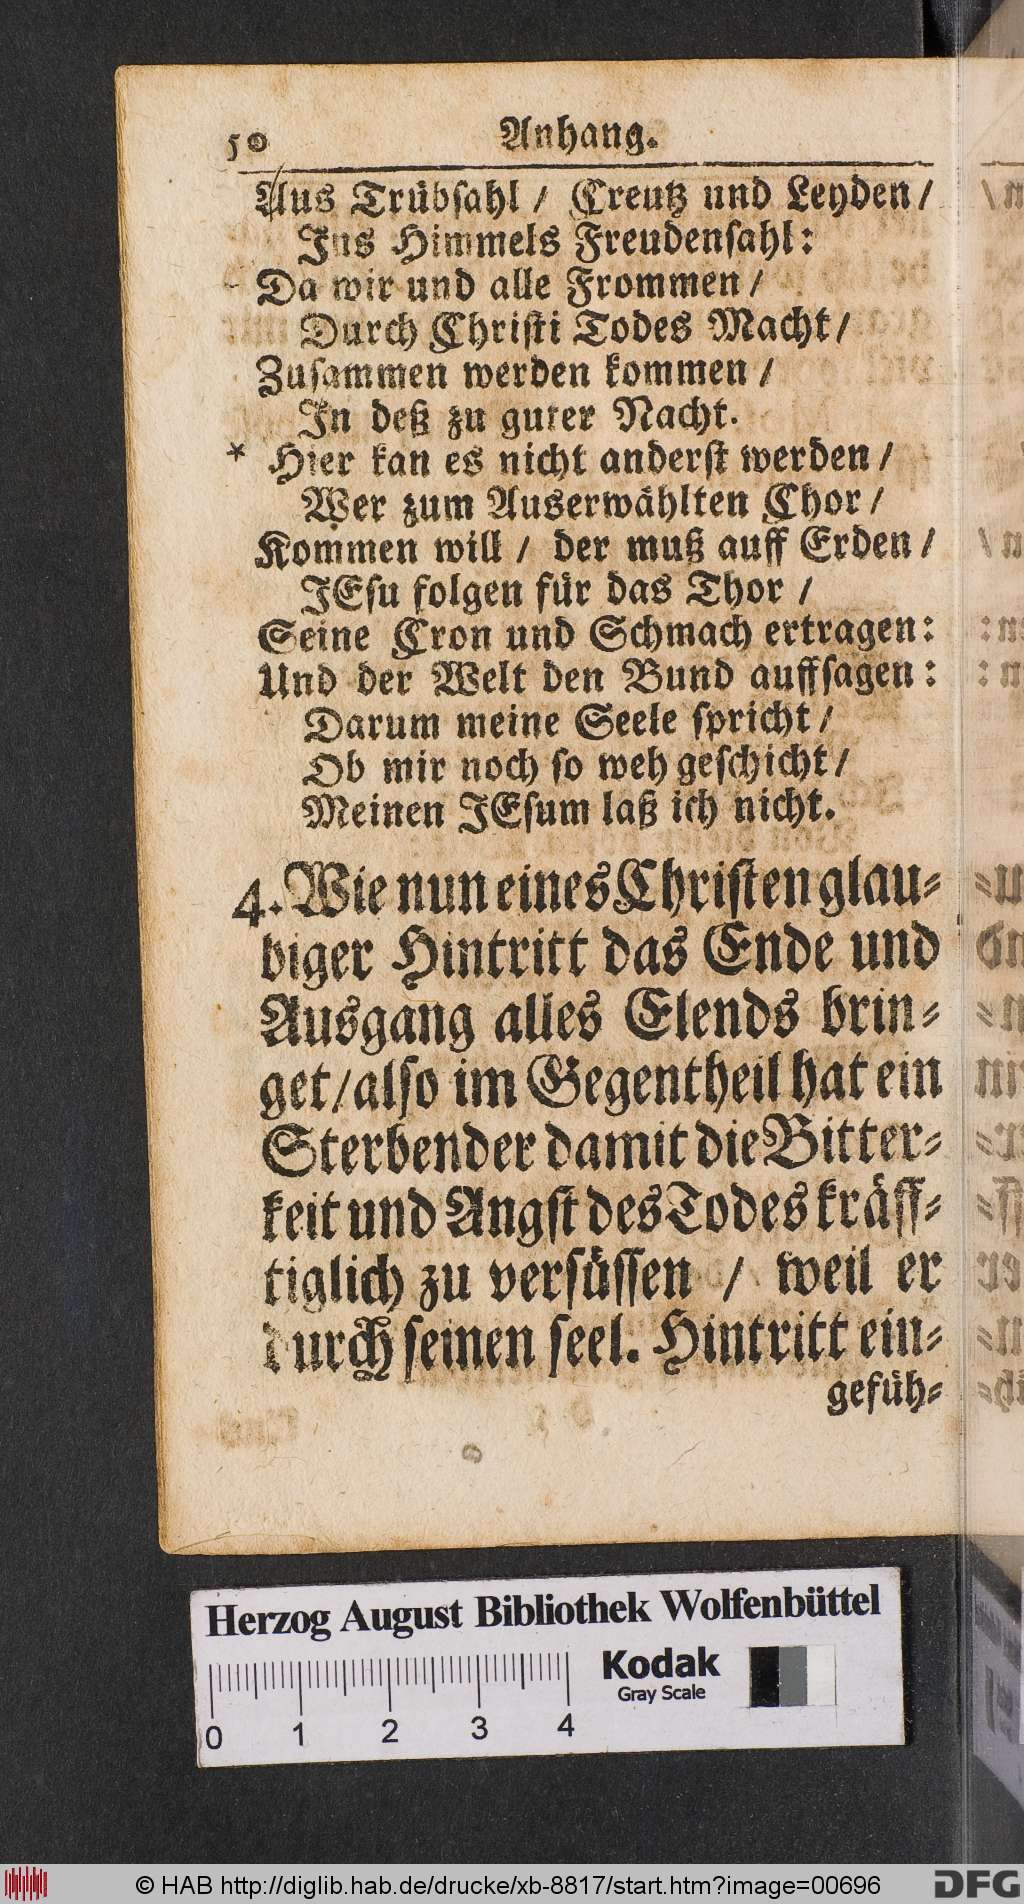 50 Anhang.
Aus Trübsahl / Creutz und Leyden /
Ins Himmels Freudensahl:
Da wir und alle Frommen /
Durch Christi Todes Macht /
Zusammen werden kommen /
In deß zu guter Nacht.
* Hier kan es nicht anderst werden /
Wer zum Auserwählten Chor /
Kommen will / der muß auff Erden /
JEsu folgen für das Thor /
Seine Cron und Schmach ertragen:
Und der Welt den Bund auffsagen:
Darum meine Seele spricht /
Ob mir noch so weh geschicht /
Meinen JEsum laß ich nicht.
4. Wie nun eines Christen glau-
biger Hintritt das Ende und
Ausgang alles Elends brin-
get / also im Gegentheil hat ein
Sterbender damit die Bitter-
keit und Angst des Todes kräff-
tiglich zu versüssen / weil er
durch seinen seel. Hintritt ein-
gefüh-
Herzog August Bibliothek Wolfenbüttel
Kodak
Gray Scale
0 1 2 3 4
© HAB http://diglib.hab.de/drucke/xb-8817/start.htm?image=00696
DFG